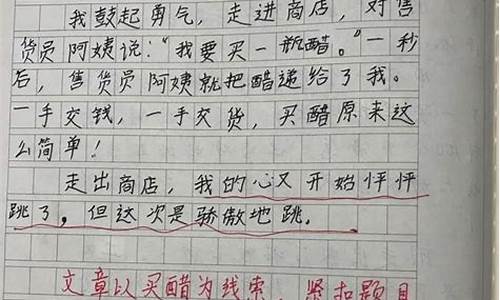 我鼓起勇气，走进商店，对售
货员阿姨说："我要买一瓶醋。"一秒
后，售货员阿姨就把醋递给了我。
一手交钱，一手交货，买醋原来这
么简单！
走出商店，我的心又开始怦怦
跳了，但这次是骄傲地跳。
文章以买醋为线索，紧扣题目